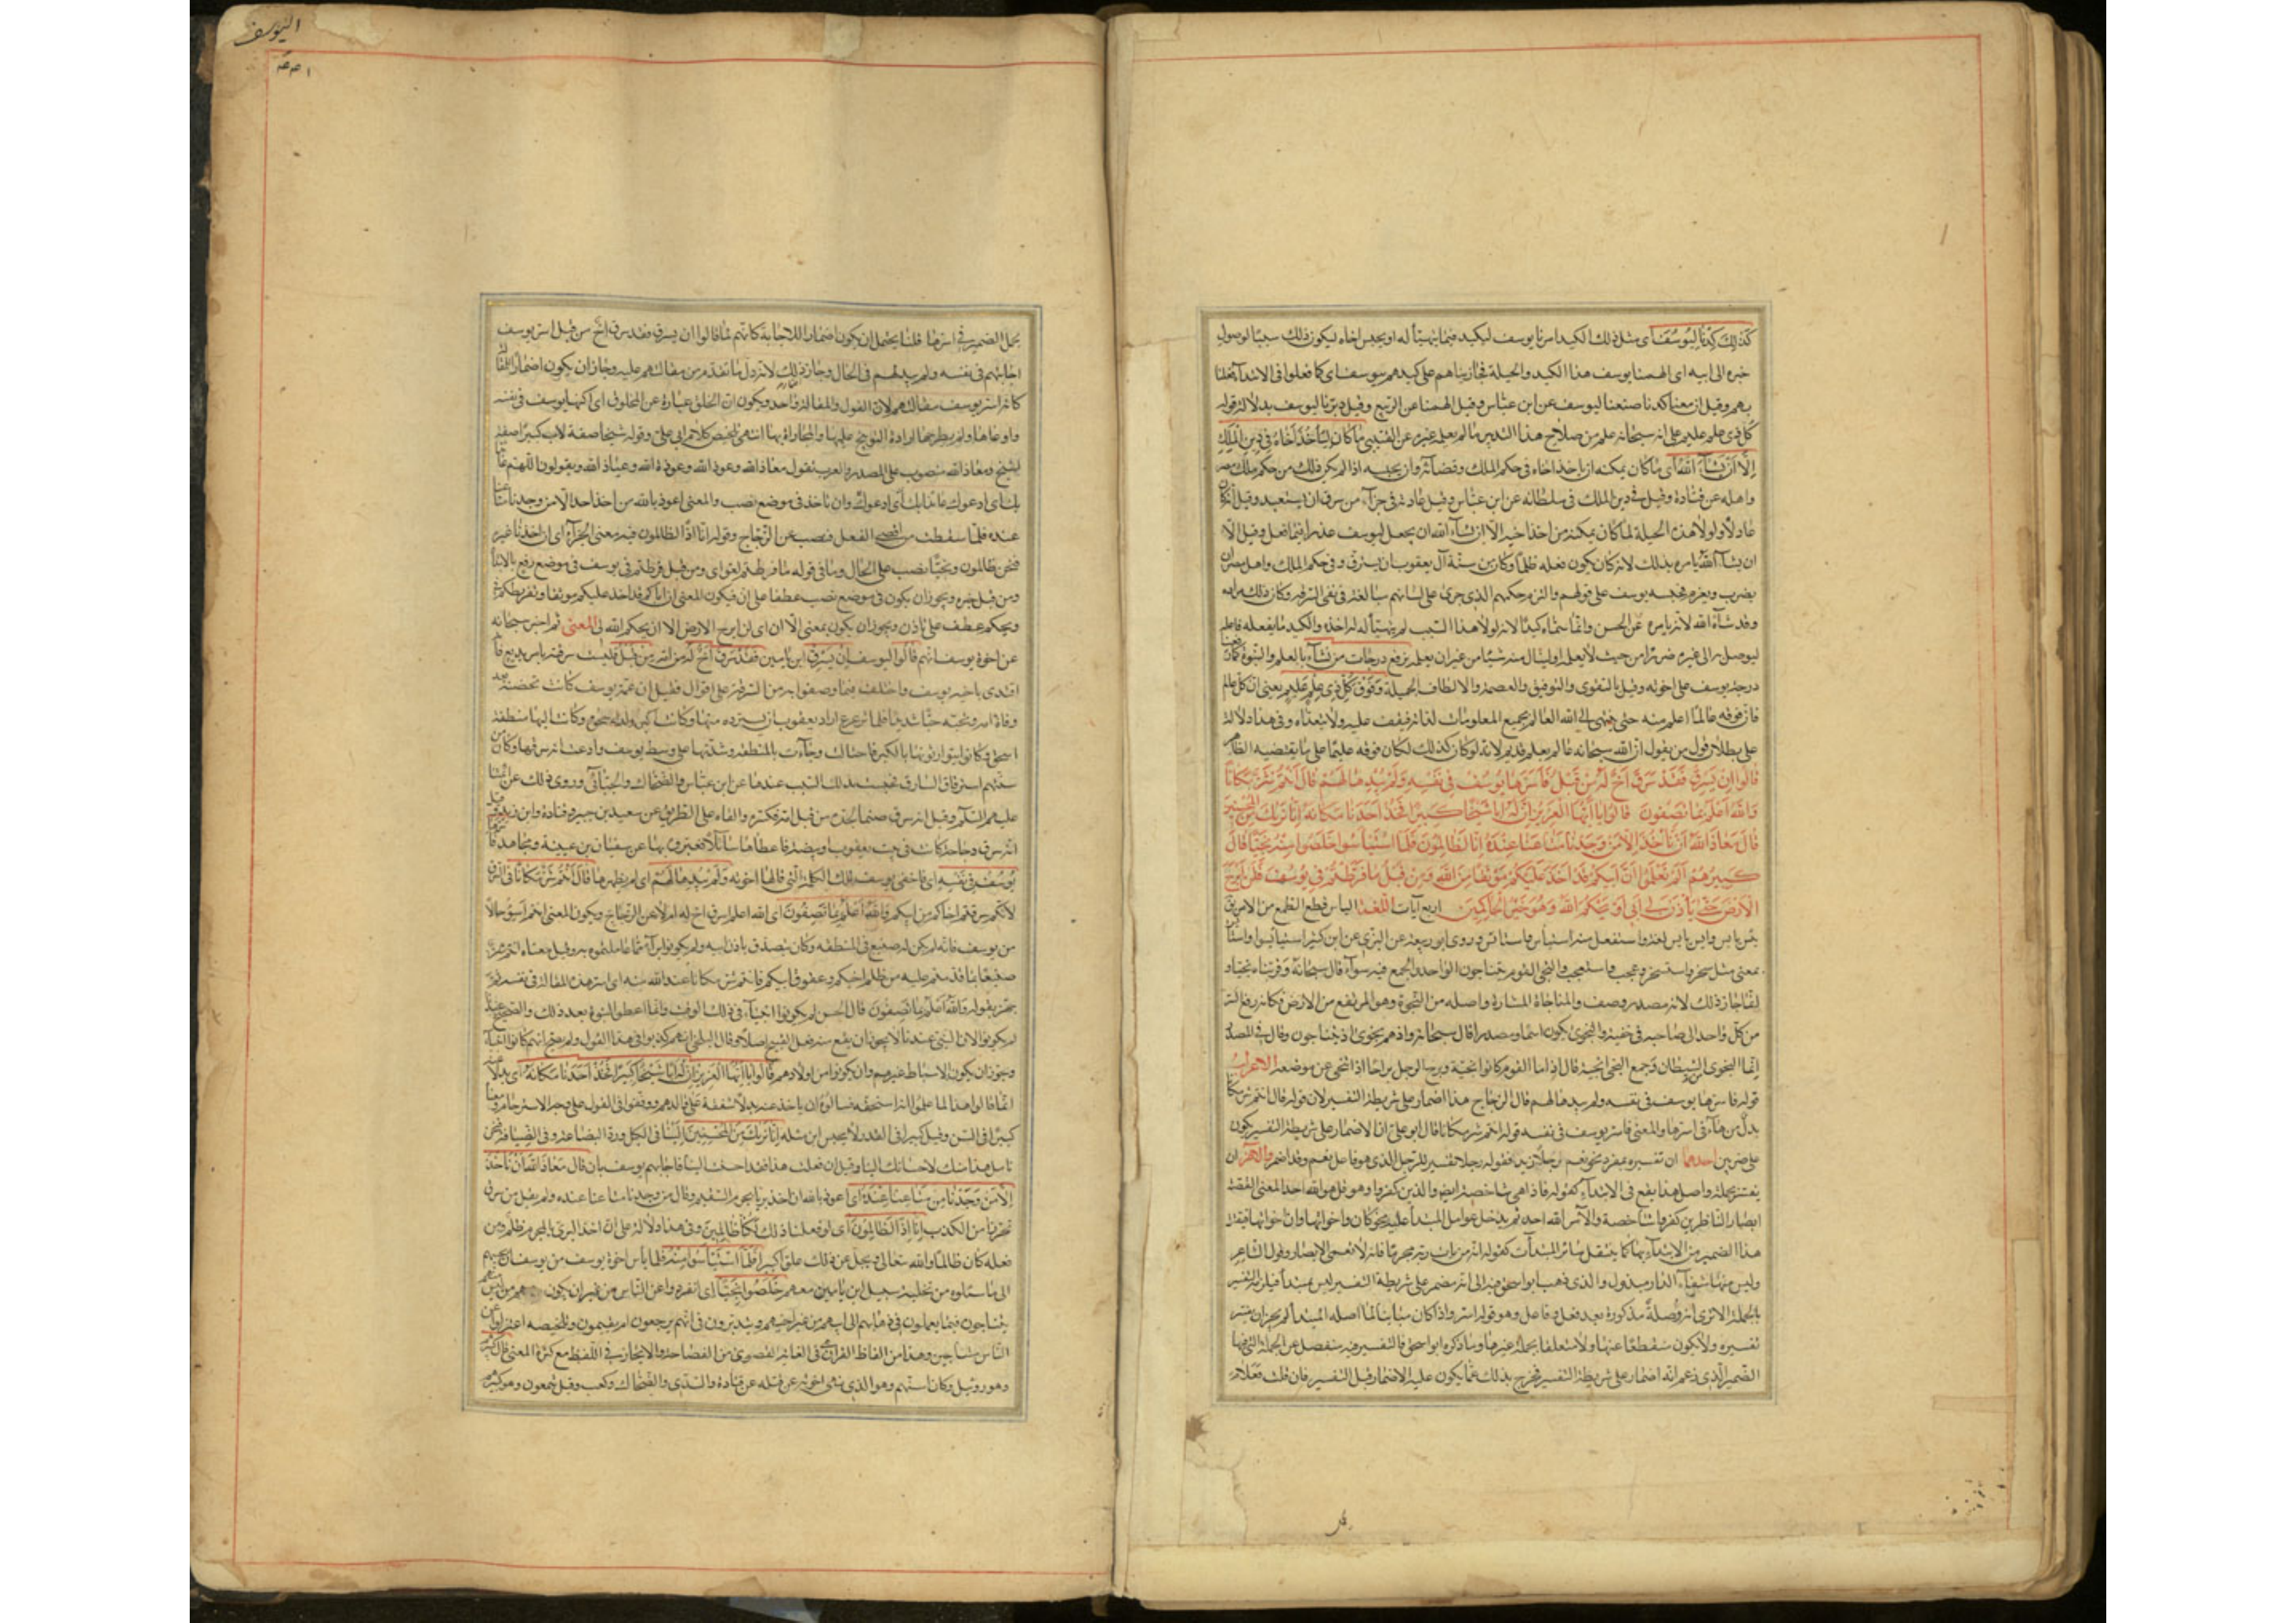 كَذٰلِكَ كِدْنَا لِيُوسُفَ اى مثل ذلك الكيد امرنا يوسف ليكيد فيما يتهيأ له او يحبس اخاه ليكون ذلك سببا لوصول
خبره الى ابيه اى الهمنا يوسف هذا الكيد والحيلة فجازيناهم على كيدهم بيوسف اى كما فعلوا فى الابتداء فعلنا
بهم وقيل ان معنى كدنا صنعنا ليوسف عن ابن عباس وقيل الهمنا عن الربيع وقيل دبرنا ليوسف بدلالة قوله
كل ذى علم عليم على انه سبحانه علم من صلاح هذا التدبير ما لم يعلمه غيره عن القتيبى مَا كَانَ لِيَأْخُذَ اَخَاهُ فِى دِينِ الْمَلِكِ
اِلَّا اَنْ يَشَاءَ اللهُ اى ما كان يمكنه ان ياخذ اخاه فى حكم الملك وقضائه وان يحبسه اذا لم يكن ذلك من حكم ملك مصر
واهله عن قتادة وقيل فى دين الملك فى سلطانه عن ابن عباس وقيل عادته فى جزاء من سرق ان يستعبد وقيل انه كان
عادلا ولولا هذه الحيلة لما كان يمكنه من اخذ اخيه الا ان يشاء الله ان يجعل ليوسف عذرا فيما فعل وقيل الا
ان يشاء الله يامره بذلك لانه كان يكون فعله ظلما وكان من سنة آل يعقوب ان يسترق وفى حكم الملك واهل مصر ان
يضرب ويغرم فحبسه يوسف على قولهم والزمه حكمهم الذى جرى على لسانهم مبالغة فى نفى السرقة وكان ذلك مراده
وقد شاء الله لانه بامره عن الحسن وانما سماه كيدا لانه لولا هذا السبب لم يتهيأ له اخذه والكيد ما يفعله فاعله
ليوصل به الى غيره ضررا من حيث لا يعلم او لينال منه شيئا من غير ان يعلمه نرفع درجات من نشاء بالعلم والنبوة كما رفعنا
درجة يوسف على اخوته وقيل بالتقوى والتوفيق والعصمة والالطاف الجميلة وَفَوْقَ كُلِّ ذِى عِلْمٍ عَلِيمٌ يعنى ان كل عالم
فان فوقه عالما اعلم منه حتى ينتهى الى الله العالم بجميع المعلومات لذاته فيقف عليه ولا يتعداه وفى هذا دلالة
على بطلان قول من يقول ان الله سبحانه عالم بعلم قديم لانه لو كان كذلك لكان فوقه عليم على ما يقتضيه الظاهر
قَالُوا اِنْ يَسْرِقْ فَقَدْ سَرَقَ اَخٌ لَهُ مِنْ قَبْلُ فَاَسَرَّهَا يُوسُفُ فِى نَفْسِهِ وَلَمْ يُبْدِهَا لَهُمْ قَالَ اَنْتُمْ شَرٌّ مَكَانًا
وَاللهُ اَعْلَمُ بِمَا تَصِفُونَ قَالُوا يَا اَيُّهَا الْعَزِيزُ اِنَّ لَهُ اَبًا شَيْخًا كَبِيرًا فَخُذْ اَحَدَنَا مَكَانَهُ اِنَّا نَرٰيكَ مِنَ الْمُحْسِنِينَ
قَالَ مَعَاذَ اللهِ اَنْ نَاْخُذَ اِلَّا مَنْ وَجَدْنَا مَتَاعَنَا عِنْدَهُ اِنَّا اِذًا لَظَالِمُونَ فَلَمَّا اسْتَيْاَسُوا مِنْهُ خَلَصُوا نَجِيًّا قَالَ
كَبِيرُهُمْ اَلَمْ تَعْلَمُوا اَنَّ اَبَاكُمْ قَدْ اَخَذَ عَلَيْكُمْ مَوْثِقًا مِنَ اللهِ وَمِنْ قَبْلُ مَا فَرَّطْتُمْ فِى يُوسُفَ فَلَنْ اَبْرَحَ
الْاَرْضَ حَتّٰى يَاْذَنَ لِى اَبِى اَوْ يَحْكُمَ اللهُ لِى وَهُوَ خَيْرُ الْحَاكِمِينَ اربع آيات اللغة الياس قطع الطمع من الامر
بمعنى مثل سخر واستسخر وعجب واستعجب والنجى القوم يتناجون الواحد والجمع فيه سواء قال سبحانه وقربناه نجيا و
انما جاز ذلك لانه مصدر وصف به والمناجاة المسارة واصله من النجوة وهو المرتفع من الارض فكانه رفع السر
من كل واحد الى صاحبه فى خفية والنجوى يكون اسما ومصدرا قال سبحانه واذ هم نجوى اى يتناجون وقال فى المصدر
انما النجوى من الشيطان وجمع النجى انجية قال انى اذا ما القوم كانوا انجية وبرح الرجل براحا اذا تنحى عن موضعه الاعراب
قوله فاسرها يوسف فى نفسه ولم يبدها لهم قال الزجاج هذا اضمار على شريطة التفسير لان قوله قال انتم شر مكانا
بدل من ها فى اسرها والمعنى فاسر يوسف فى نفسه قوله انتم شر مكانا قال ابو على ان الاضمار على شريطة التفسير يكون
على ضربين احدهما ان تفسيره بمفرد نحو نعم رجلا زيد فقوله رجلا تفسير للرجل الذى هو فاعل نعم وقد اضمر والآخر ان
يفسر بجملة واصل هذا يقع فى الابتداء كقوله فاذا هى شاخصة ابصار الذين كفروا وهو قل هو الله احد المعنى القصة
ابصار الناظرين كفروا شاخصة والامر الله احد ثم يدخل عوامل المبتدأ عليه نحو كان واخواتها وان واخواتها فينتقل
هذا الضمير من الابتداء بها كما ينتقل سائر المبتدآت كقوله انه من يات ربه مجرما فانها لا تعمى الابصار وقول الشاعر
وليس منها شفاء الداء مبذول والذى ذهب ابو اسحق فيه الى انه مضمر على شريطة التفسير ليس بمبتدأ فيلزمه التفسير
تفسيره ولا يكون منقطعا عنها ولا متعلقا بجملة غيرها وما ذكره ابو اسحق فالتفسير فيه منفصل عن الجملة التى فيها
الضمير الذى زعم انه اضمار على شريطة التفسير فخرج بذلك عما يكون عليه الاضمار قبل التفسير فان قلت فعلام
فر
اليوسف
يحمل الضمير فى اسرها قلنا يحتمل ان يكون اضمارا للاجابة كانهم لما قالوا ان يسرق فقد سرق اخ من قبل اسر يوسف
اجابتهم فى نفسه ولم يبدها لهم فى الحال وجاز ذلك لانه دل ما تقدم من مقالتهم عليه وجاز ان يكون اضمارا للمقالة
كانه اسر يوسف مقالتهم لان القول والمقالة واحد ويكون ان الخلق عبارة عن المخلوق اى اكنها يوسف فى نفسه
واوعاها ولم يطرحها ارادة التوبيخ عليها والمجازاة بها انتهى تلخيص كلام ابى على وقوله شيخا صفة لاب كبيرا صفة
لشيخ ومعاذ الله منصوب على المصدر والعرب تقول معاذ الله وعوذ الله وعوذة الله وعياذ الله ويقولون اللهم عائذا
بك اى ادعوك عائذا بك وان ناخذ فى موضع نصب والمعنى اعوذ بالله من اخذ احد الا من وجدنا متاعنا
عنده فلما سقطت من افضى الفعل فنصب عن الزجاج وقوله انا اذا لظالمون فيه معنى الجزاء اى ان اخذنا غيره
فنحن ظالمون ونجيا نصب على الحال وما فى قوله ما فرطتم لغو اى ومن قبل فرطتم فى يوسف فى موضع رفع بالابتداء
ومن قبل خبره ويجوز ان يكون فى موضع نصب عطفا على ان فيكون المعنى ان اباكم قد اخذ عليكم موثقا وتفريطكم
ويحكم عطف على ياذن ويجوز ان يكون بمعنى الا ان اى لن ابرح الارض الا ان يحكم الله لى المعنى ثم اخبر سبحانه
عن اخوة يوسف انهم قالوا ليوسف اِنْ يَسْرِقْ ابن يامين فَقَدْ سَرَقَ اَخٌ لَهُ من امه مِنْ قَبْلُ فليست سرقته بامر بديع فانه
اقتدى باخيه يوسف واختلف فيما وصفوا به من السرقة على اقوال فقيل ان عمة يوسف كانت تحضنه بعد
وفاة امه وتحبه حبا شديدا فلما ترعرع اراد يعقوب ان يسترده منها وكانت اكبر ولد اسحق وكانت اليها منطقة
اسحق وكانوا يتوارثونها بالكبر فاحتالت وجاءت بالمنطقة وشدتها على وسط يوسف وادعت انه سرقها وكان من
سنتهم استرقاق السارق فحبسته بذلك السبب عندها عن ابن عباس والضحاك والجبائى وروى ذلك عن ائمتنا
عليهم السلام وقيل انه سرق صنما لجده من قبل امه فكسره والقاه على الطريق عن سعيد بن جبير وقتادة وابن زيد وقيل
انه سرق دجاجة كانت فى بيت يعقوب او بيضة فاعطاها سائلا فعيروه بها عن سفيان بن عيينة ومجاهد فاسرها
يُوسُفُ فِى نَفْسِهِ اى فاخفى يوسف تلك الكلمة التى قالها اخوته وَلَمْ يُبْدِهَا لَهُمْ اى لم يظهرها قَالَ اَنْتُمْ شَرٌّ مَكَانًا فى السرق
لانكم سرقتم اخاكم من ابيكم وَاللهُ اَعْلَمُ بِمَا تَصِفُونَ اى الله اعلم اسرق اخ له ام لا عن الزجاج ويكون المعنى انتم اسوء حالا
من يوسف فانه لم يكن له صنيع فى المنطقة وكان يتصدق باذن ابيه ولم يكونوا براء مما عاملتموه به وقيل معناه انتم شر
صنيعا بما قدمتم عليه من ظلم اخيكم وعقوق ابيكم فانتم شر مكانا عند الله منه اى اسر هذه المقالة فى نفسه ثم
جهر بقوله والله اعلم بما تصفون قال الحسن لم يكونوا انبياء فى ذلك الوقت وانما اعطوا النبوة بعد ذلك والصحيح عندنا
لم يكونوا لان النبى عندنا لا يجوز ان يقع منه فعل القبيح اصلا وقال البلخى انهم كذبوا فى هذا القول ولم يصح انهم كانوا انبياء
وجوز ان يكون الاسباط غيرهم وان يكونوا من اولادهم قَالُوا يَا اَيُّهَا الْعَزِيزُ اِنَّ لَهُ اَبًا شَيْخًا كَبِيرًا فَخُذْ اَحَدَنَا مَكَانَهُ اى بدلا عنه
انما قالوا هذا لما علموا انه استحقه فسالوه ان ياخذ عنه بدلا شفقة على والدهم ووقفوا فى القول على وجه الاسترحام ومعناه
كبيرا فى السن وقيل كبيرا فى القدر لا يحبس ابن مثله اِنَّا نَرٰيكَ مِنَ الْمُحْسِنِينَ الينا فى الكيل ورد البضاعة وفى الضيافة ونحن
نامل هذا منك لاحسانك الينا وقيل ان فعلت هذا فقد احسنت الينا فاجابهم يوسف بان قال مَعَاذَ اللهِ اَنْ نَاْخُذَ
اِلَّا مَنْ وَجَدْنَا مَتَاعَنَا عِنْدَهُ اى اعوذ بالله ان اخذ بريا بجرم السقيم وقال من وجدنا متاعنا عنده ولم يقل من سرق
تحرزا من الكذب اِنَّا اِذًا لَظَالِمُونَ اى لو فعلنا ذلك لكنا ظالمين وفى هذا دلالة على ان اخذ البرى بالمجرم ظلم ومن
فعله كان ظالما والله تعالى يجل عن ذلك علوا كبيرا فَلَمَّا اسْتَيْاَسُوا مِنْهُ فلما يأس اخوة يوسف من يوسف ان يجيبهم
الى ما سالوه من تخلية سبيل ابن يامين معهم خَلَصُوا نَجِيًّا اى انفردوا عن الناس من غير ان يكون معهم من ليس منهم
يتناجون فيما يعملون فى ذهابهم الى ابيهم من غير اخيهم ويتدبرون فى انهم يرجعون ام يقيمون وتلخيصه اعتزلوا عن
الناس متناجين وهذا من الفاظ القرآن فى الغاية القصوى من الفصاحة والايجاز فى اللفظ مع كثرة المعنى قَالَ كَبِيرُهُمْ
وهو روبيل وكان اسنهم وهو الذى نهى اخوته عن قتله عن قتادة والسدى والضحاك وكعب وقيل شمعون وهو كبيرهم